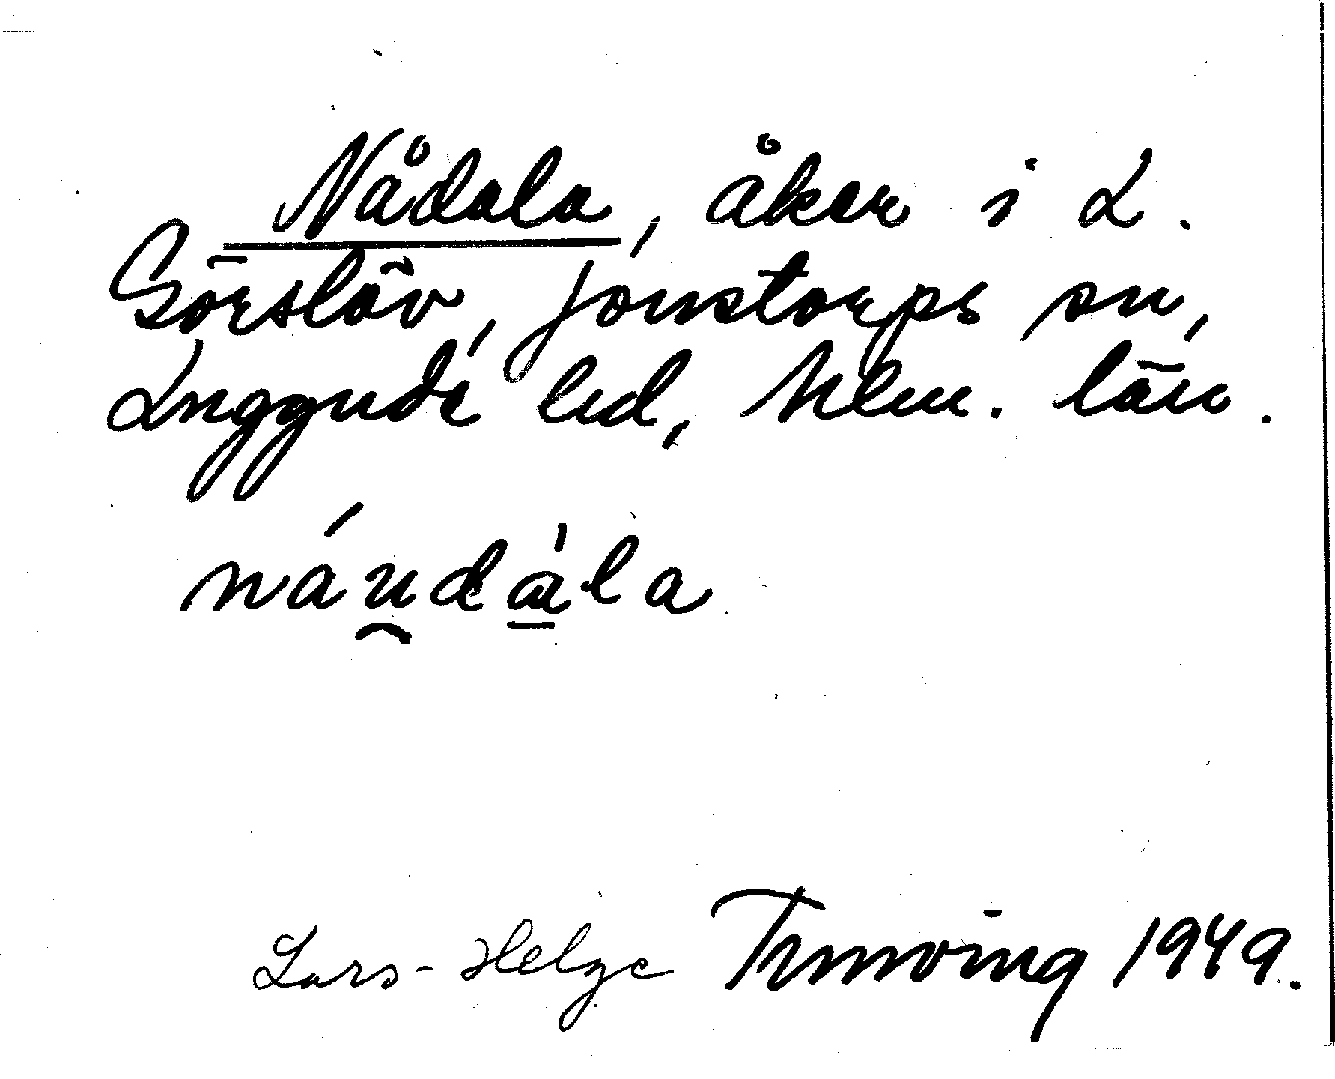 Nådala, åker i L.
Görslöv, Jonstorps sn,
Luggude hd, Mlm. län.
náu̯dàla
Lars-Helge 1949.